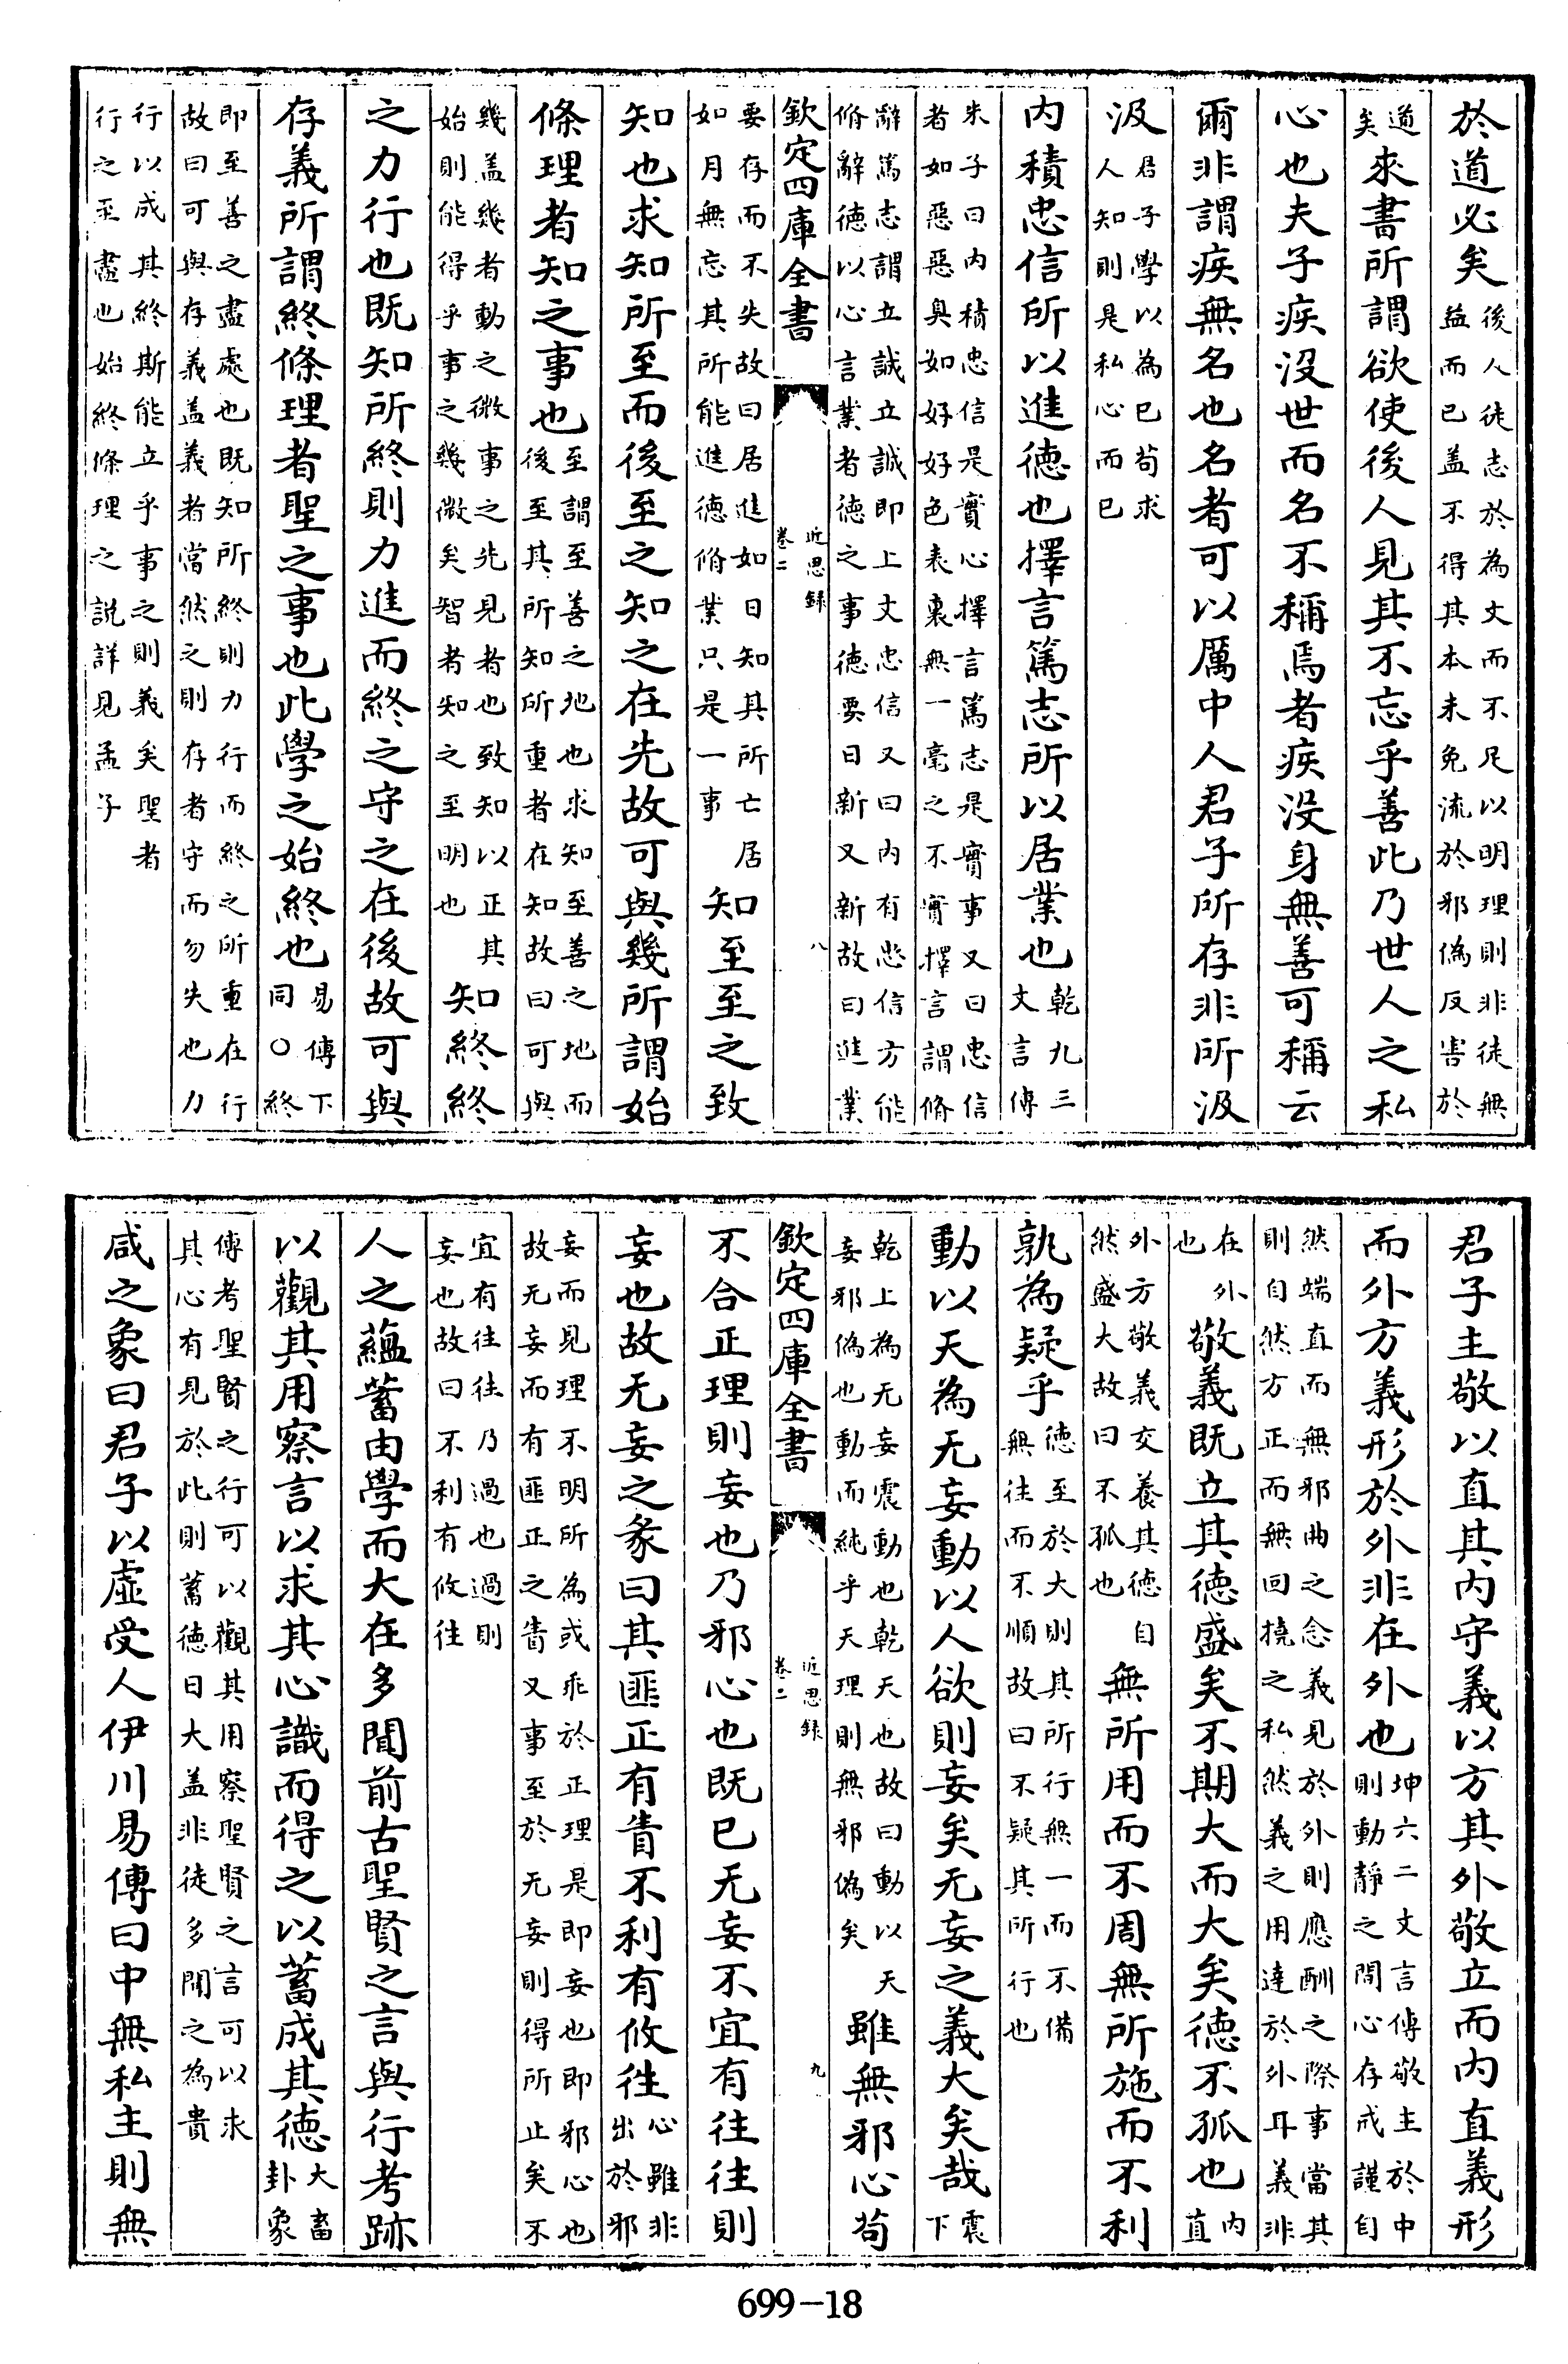 於道必矣後人徒志於為文而不足以明理則非徒無益而已盖不得其本未免流於邪偽反害於
道矣來書所謂欲使後人見其不忘乎善此乃世人之私
心也夫子疾沒世而名不稱焉者疾沒身無善可稱云
爾非謂疾無名也名者可以厲中人君子所存非所汲
汲君子學以為已苟求人知則是私心而已
内積忠信所以進德也擇言篤志所以居業也乾九三文言傳
朱子曰内積忠信是實心擇言篤志是實事又曰忠信者如惡惡臭如好好色表裏無一毫之不實擇言謂脩
辭篤志謂立誠立誠即上文忠信又曰内有忠信方能脩辭德以心言業者德之事德要日新又新故曰進業
欽定四庫全書 近思錄 卷二 八
要存而不失故曰居進如日知其所亡居如月無忘其所能進德脩業只是一事知至至之致
知也求知所至而後至之知之在先故可與幾所謂始
條理者知之事也至謂至善之地也求知至善之地而後至其所知所重者在知故曰可與
幾盖幾者動之微事之先見者也致知以正其始則能得乎事之幾微矣智者知之至明也知終終
之力行也既知所終則力進而終之守之在後故可與
存義所謂終條理者聖之事也此學之始終也易傳下同○終
即至善之盡處也既知所終則力行而終之所重在行故曰可與存義盖義者當然之則存者守而勿失也力
行以成其終斯能立乎事之則義矣聖者行之至盡也始終條理之説詳見孟子
君子主敬以直其内守義以方其外敬立而内直義形
而外方義形於外非在外也坤六二文言傳敬主於中則動靜之間心存戒謹自
然端直而無邪曲之念義見於外則應酬之際事當其則自然方正而無回撓之私然義之用達於外耳義非
在外也敬義既立其德盛矣不期大而大矣德不孤也内直
外方敬義交養其德自然盛大故曰不孤也無所用而不周無所施而不利
孰為疑乎德至於大則其所行無一而不備無往而不順故曰不疑其所行也
動以天為无妄動以人欲則妄矣无妄之義大矣哉震下
乾上為无妄震動也乾天也故曰動以天妄邪偽也動而純乎天理則無邪偽矣雖無邪心苟
欽定四庫全書 近思錄 卷二 九
不合正理則妄也乃邪心也既已无妄不宜有往往則
妄也故无妄之彖曰其匪正有眚不利有攸往心雖非出於邪
妄而見理不明所為或乖於正理是即妄也即邪心也故无妄而有匪正之眚又事至於无妄則得所止矣不
宜有往往乃過也過則妄也故曰不利有攸往
人之蘊蓄由學而大在多聞前古聖賢之言與行考跡
以觀其用察言以求其心識而得之以蓄成其德大畜卦象
傳考聖賢之行可以觀其用察聖賢之言可以求其心有見於此則蓄德日大盖非徒多聞之為貴
咸之象曰君子以虛受人伊川易傳曰中無私主則無
699－18